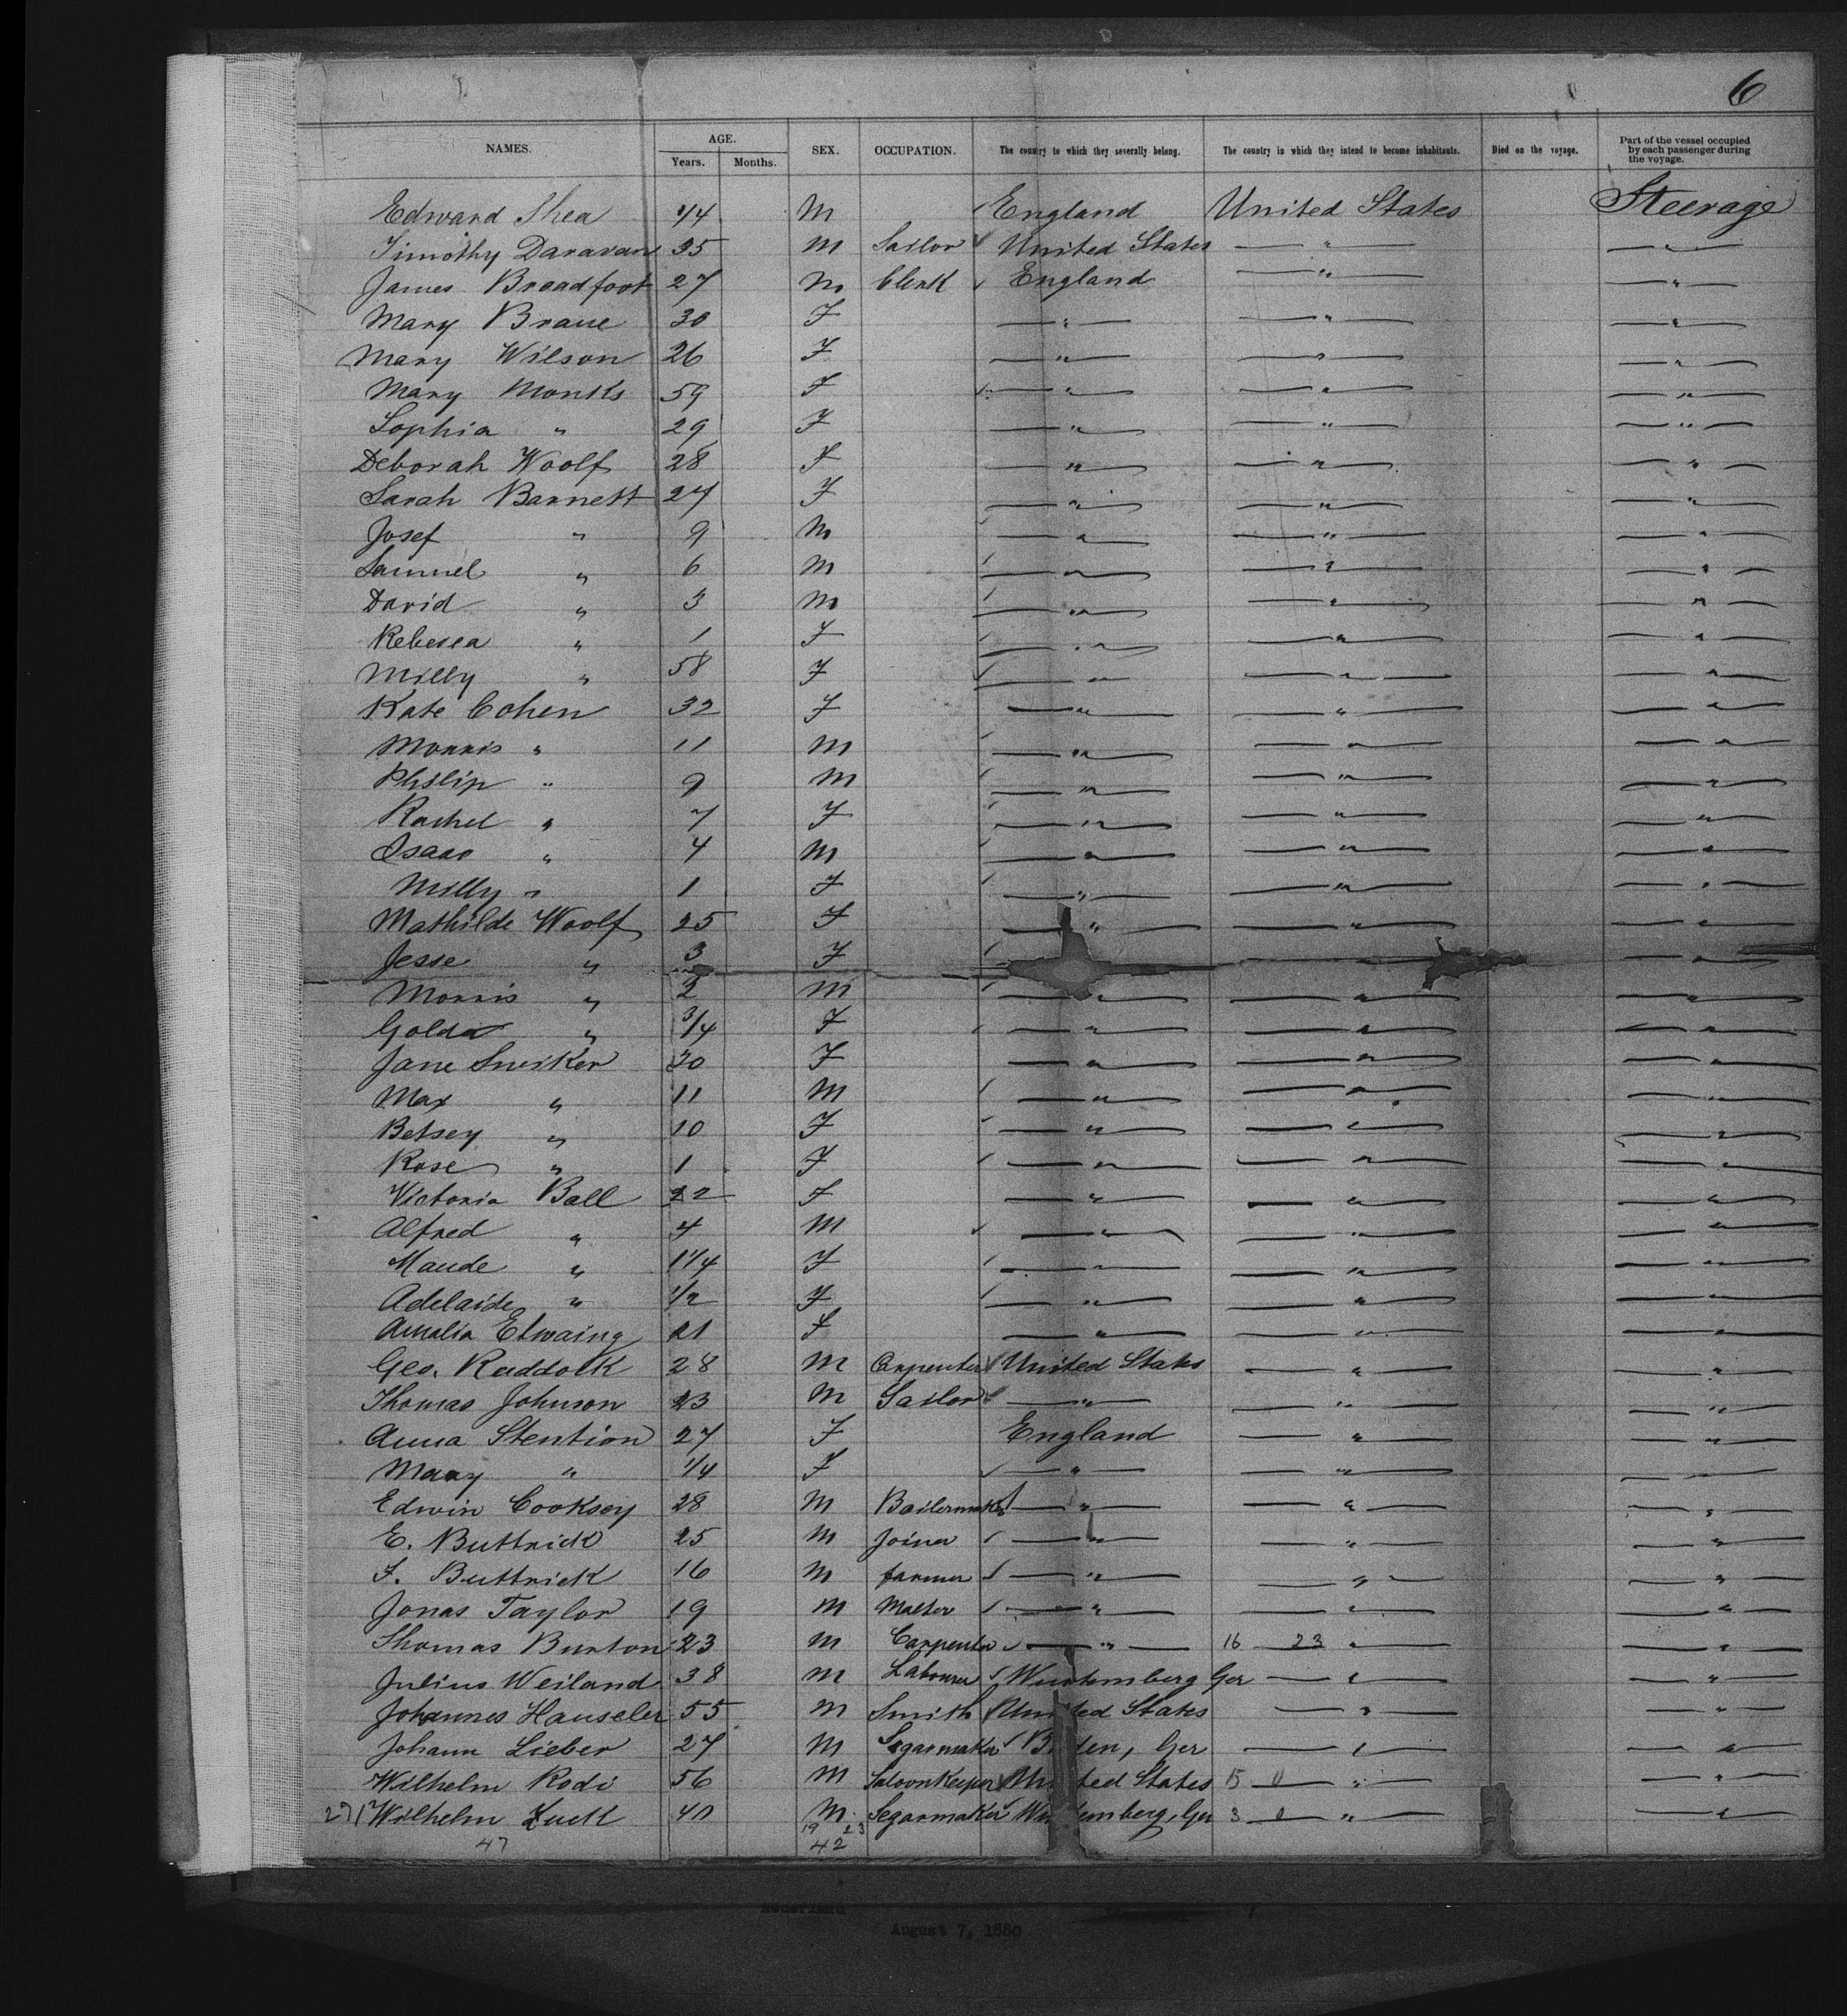 6
NAMES. AGE. Years. Months. SEX. OCCUPATION. The country to which they severally belong. The country in which they intend to become inhabitants. Died on the voyage. Part of the vessel occupied by each passenger during the voyage.
Edward Shea 44 M England United States Steerage
Timothy Daravan 35 M Sailor United States " "
James Broadfoot 27 M Clerk England " "
Mary Braue 30 F " " "
Mary Wilson 26 F " " "
Mary Monks 59 F " " "
Sophia " 29 F " " "
Deborah Woolf 28 F " " "
Sarah Barnett 27 F " " "
Josef " 9 M " " "
Samuel " 6 M " " "
David " 3 M " " "
Rebecca " 1 F " " "
Milly " 58 F " " "
Kate Cohen 32 F " " "
Morris " 11 M " " "
Philip " 9 M " " "
Rachel " 7 F " " "
Isaac " 4 M " " "
Milly " 1 F " " "
Mathilde Woolf 25 F " " "
Jesse " 3 F " "
Morris " 2 M " " "
Golda " 3/4 F " " "
Jane Sneiker 30 F " " "
Max " 11 M " " "
Betsey " 10 F " " "
Rose " 1 F " " "
Victoria Ball 22 F " " "
Alfred " 4 M " " "
Maude " 1 1/4 F " " "
Adelaide " 1/2 F " " "
Amalia Elwaing 21 F " " "
Geo. Ruddock 28 M Carpenter United States " "
Thomas Johnson 23 M Sailor " " "
Anna Stention 27 F England " "
Mary " 1/4 F " " "
Edwin Cooksey 28 M Boilermaker " " "
E. Buttrick 25 M Joiner " " "
F. Buttrick 16 M farmer " " "
Jonas Taylor 19 M Malter " " "
Thomas Burton 23 M Carpenter " 16 23 " "
Julius Weiland 38 M Labourer Wurtemberg Ger " "
Johannes Hauseler 55 M Smith United States " "
Johann Lieber 27 M Segarmaker Baden, Ger " "
Wilhelm Rodi 56 M Saloonkeeper United States 15 0 " "
271 Wilhelm Zuck 40 M Segarmaker Wurtemberg, Ger 3 0 " "
19 23
47 42
Nederland
August 7, 1880